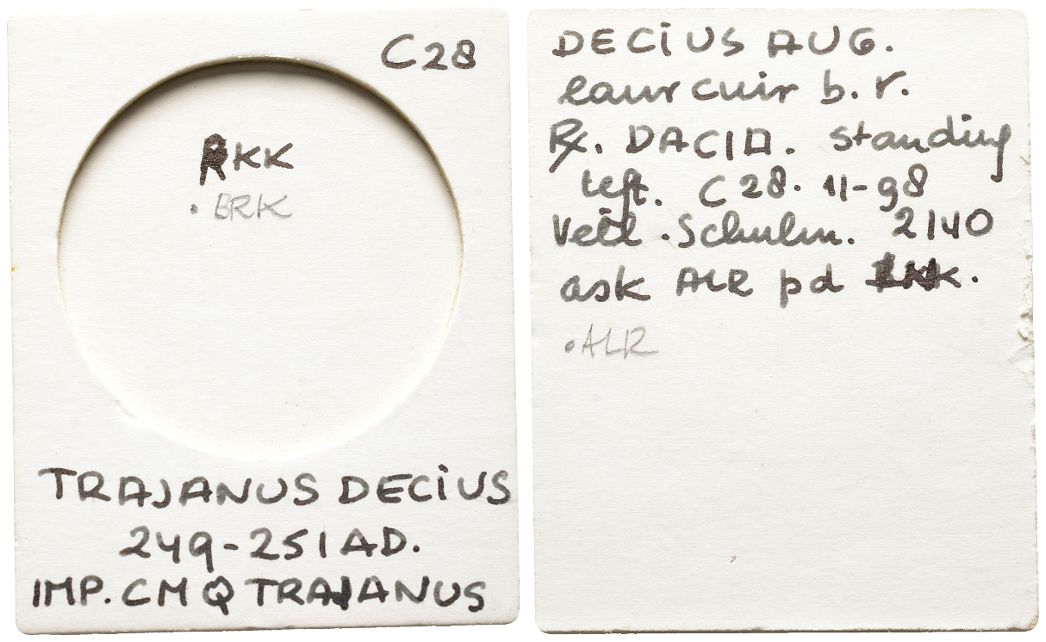 C28
RKK
. ERK
TRAJANUS DECIUS
249-251 AD.
IMP. CM Q TRAJANUS
DECIUS AUG.
laur cuir b. r.
R. DACIA. standing
left. C 28. 11-98
Veil. Schulm. 2140
ask ALR pd
. ALR